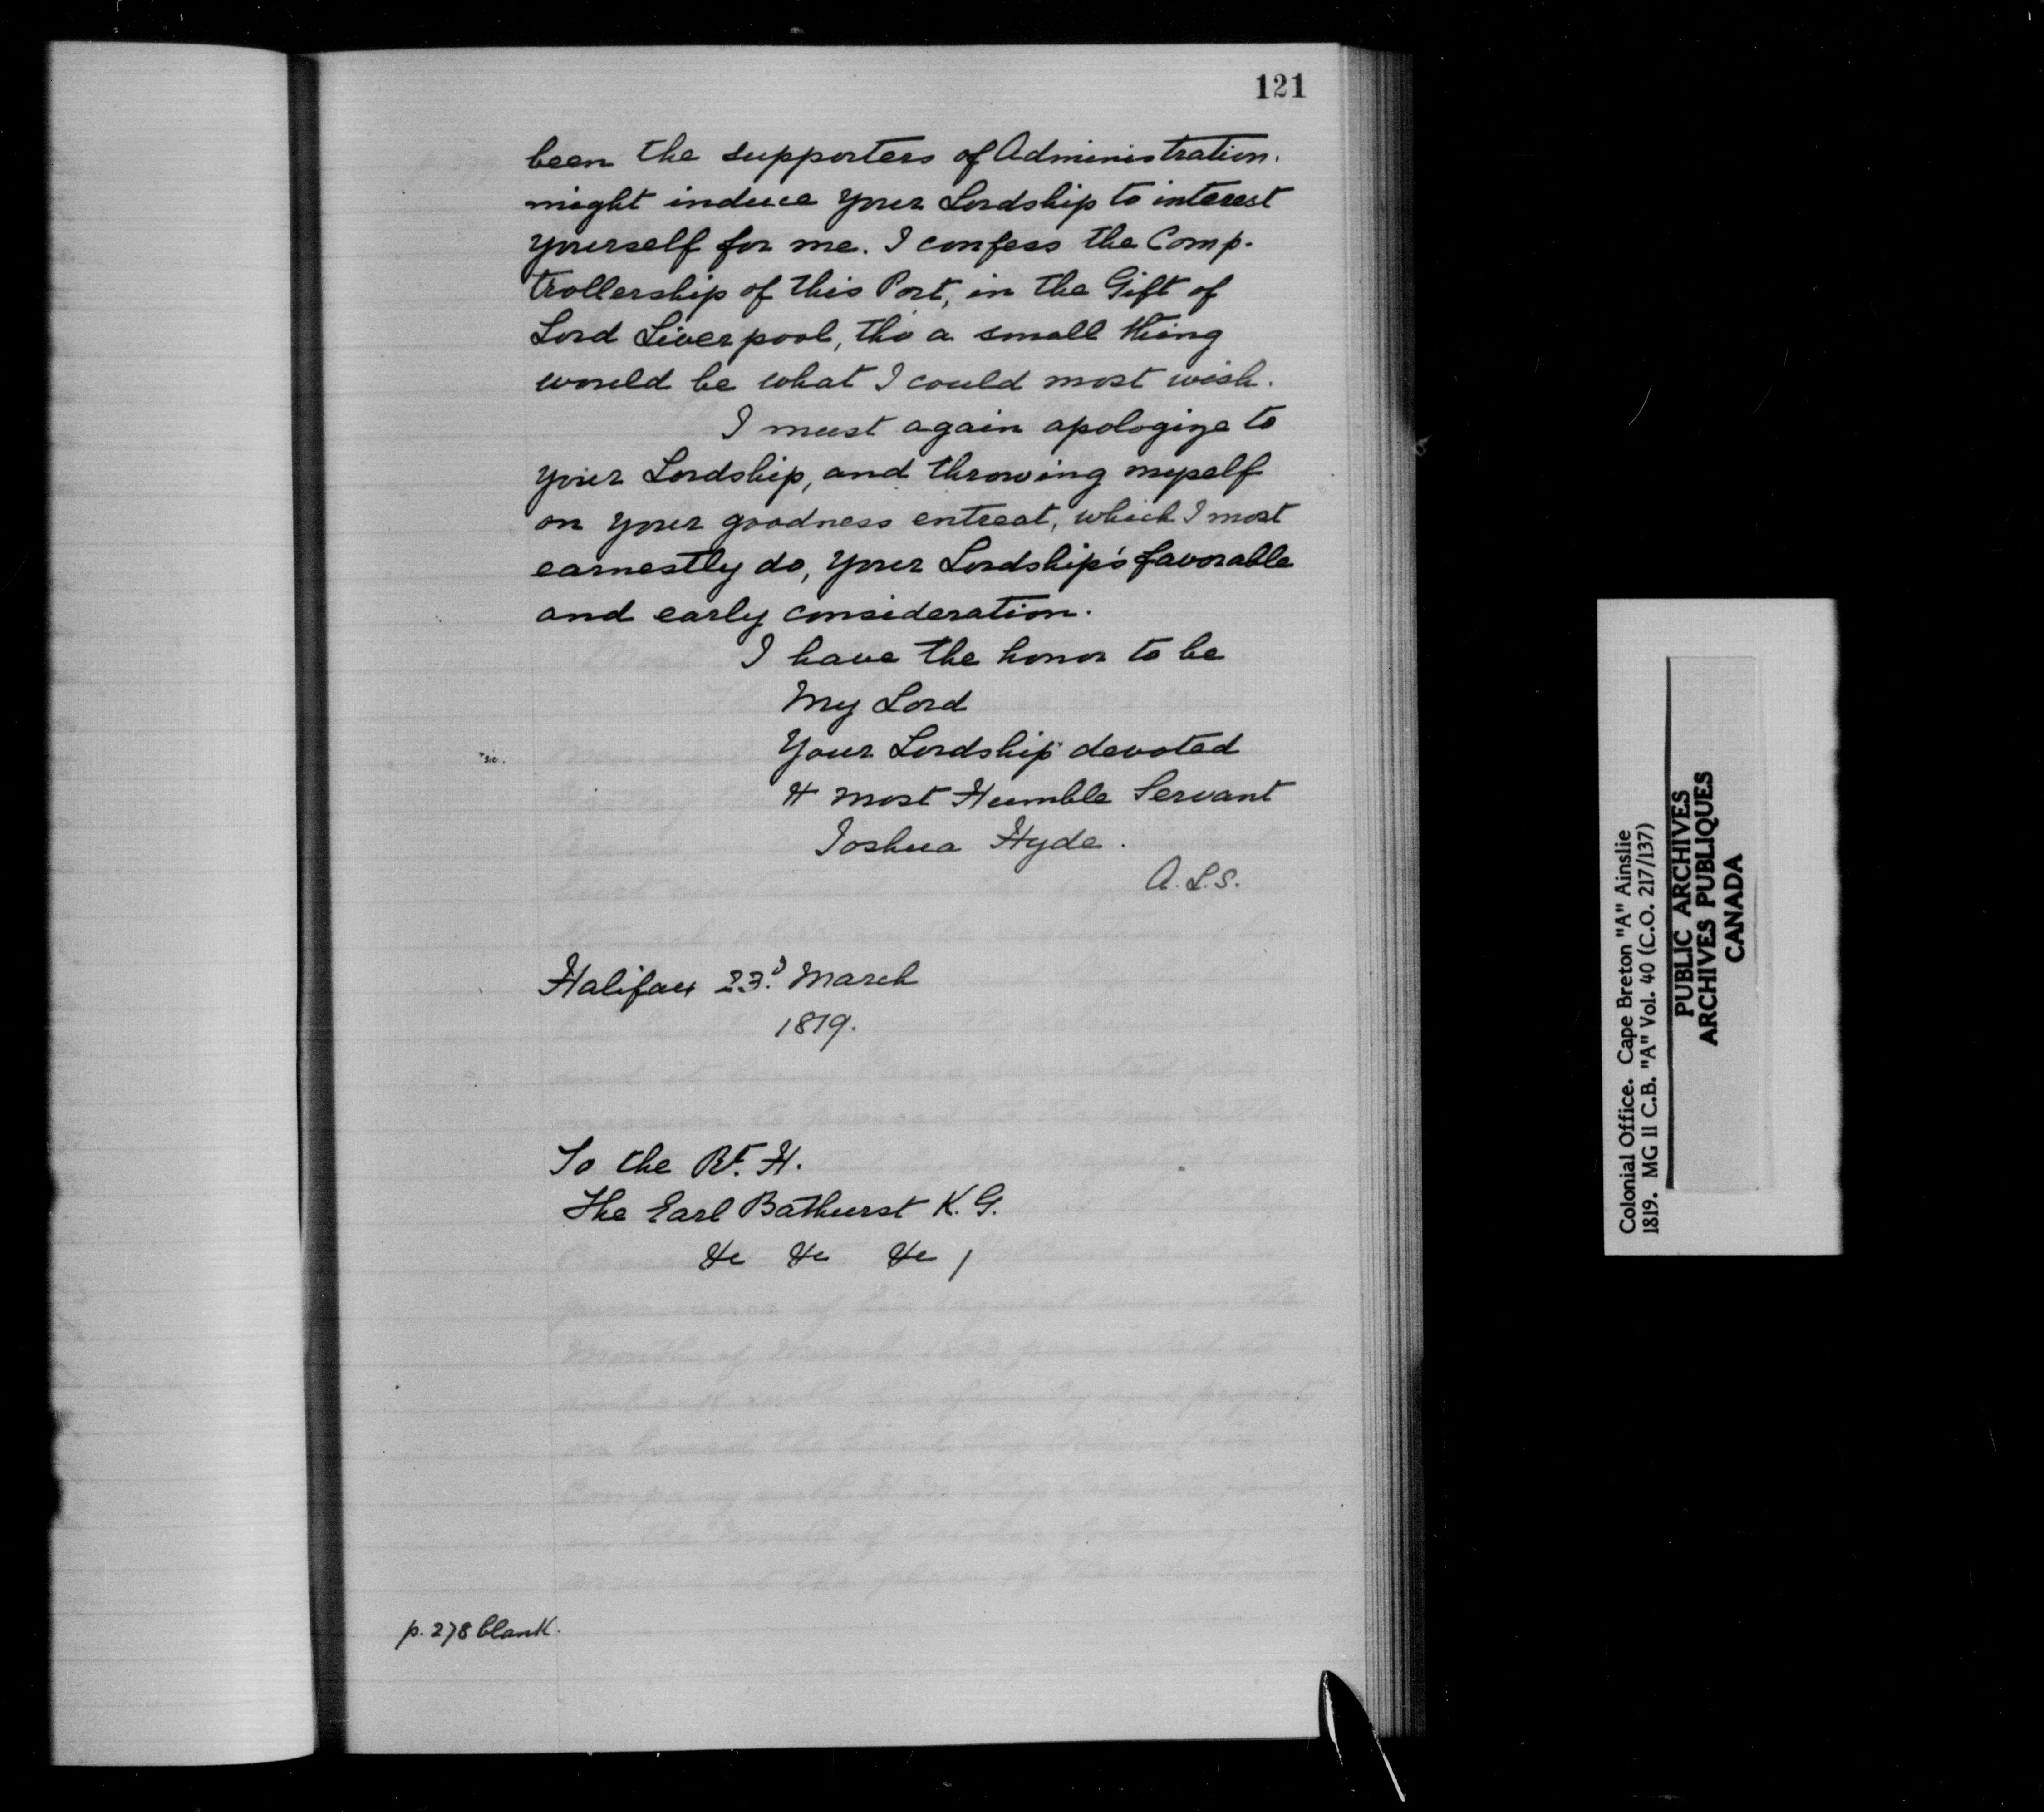 121
been the supporters of Administration.
might induce your Lordship to interest
yourself for me. I confess the Comp-
trollership of this Port, in the Gift of
Lord Liverpool, tho a small thing
would be what I could most wish.
I must again apologize to
your Lordship, and throwing myself
on your goodness entreat, which I most
earnestly do, your Lordship's favorable
and early consideration.
I have the honor to be
My Lord
"sic.
Your Lordship devoted
& most Humble Servant
Joshua Hyde.
A.L.S.
Halifax 23.d March
1819.
To the Rt. H.
The Earl Bathurst K.G.
&c &c &c /
p. 278 blank.
Colonial Office. Cape Breton "A" Ainslie
1819. MG 11 C.B. "A" Vol. 40 (C.O. 217/137)
PUBLIC ARCHIVES
ARCHIVES PUBLIQUES
CANADA